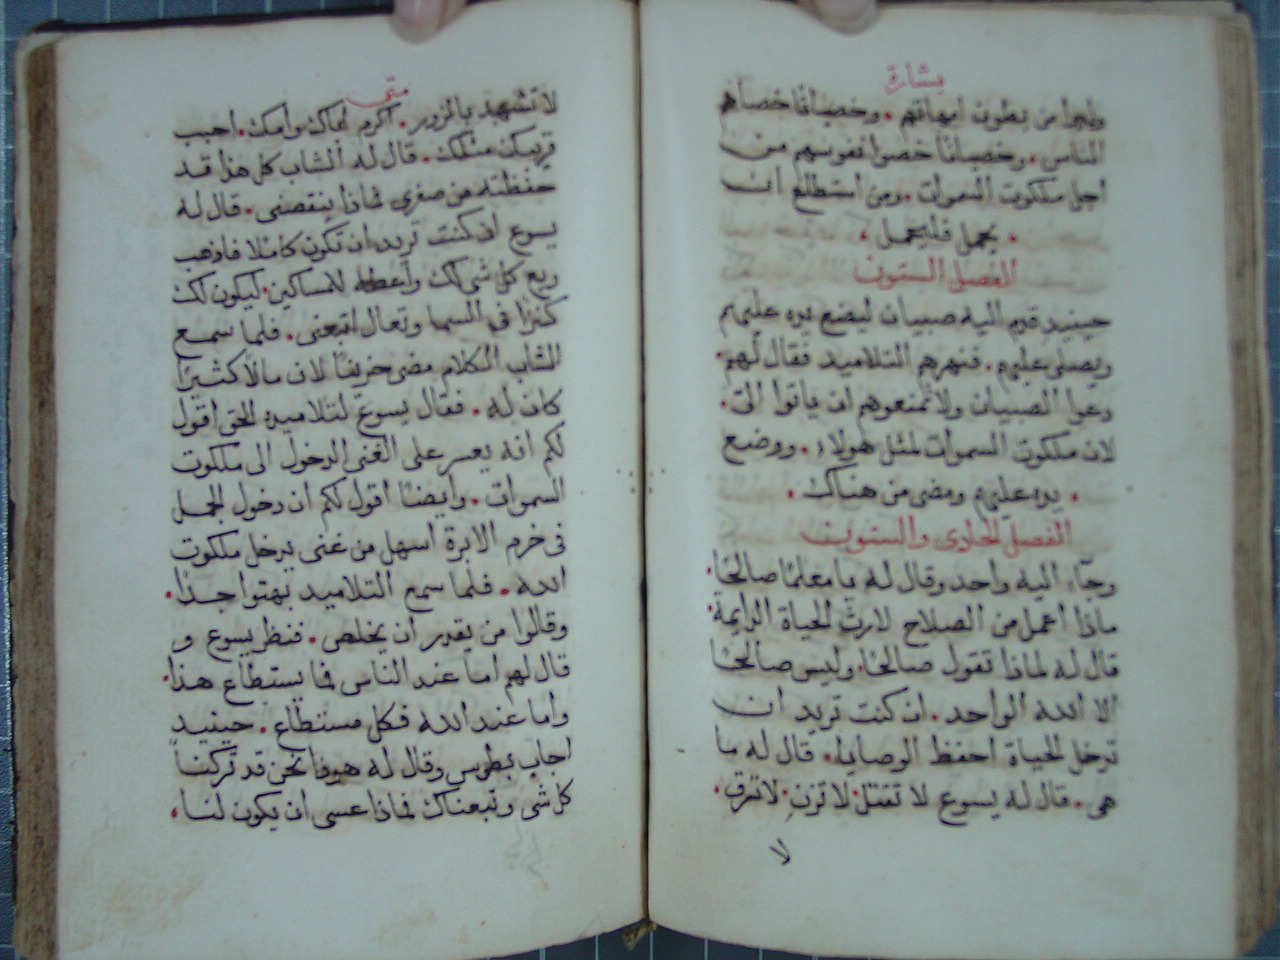 بشارة
ولدوا من بطون امهاتهم . وخصيانًا خصاهم
الناس . وخصيانًا خصوا نفوسهم من
اجل ملكوت السموات . ومن استطاع ان
. يحمل فليحمل .
الفصل الستون
حينيد قدم اليه صبيان ليضع يده عليهم
ويصلى عليهم . فنهرهم التلاميد فقال لهم .
دعوا الصبيان ولا تمنعوهم ان ياتوا الىّ .
لان ملكوت السموات لمثل هولاء . ووضع
. يده عليهم ومضى من هناك .
الفصل الحادى والستون
وجآء اليه واحد وقال له يا معلمًا صالحًا .
ماذا اعمل من الصلاح لارث الحياة الدايمة .
قال له لماذا تقول صالحًا . وليس صالحًا
الا الله الواحد . ان كنت تريد ان
تدخل الحياة احفظ الوصايا . قال له ما
هى . قال له يسوع لا تقتل . لا تزنِ . لا تسرق .
لا
متى
لا تشهد بالزور . اكرم اباك وامك . احبب
قريبك مثلك . قال له الشاب كل هذا قد
حفظته من صغرى فماذا ينقصنى . قال له
يسوع ان كنت تريد ان تكون كاملا فاذهب
وبع كل شى لك واعطه للمساكين . ليكون لك
كنزًا فى السما وتعال اتبعنى . فلما سمع
الشاب الكلام مضى حزينًا لان مالًا كثيرًا
كان له . فقال يسوع لتلاميده الحق اقول
لكم انه يعسر على الغنى الدخول الى ملكوت
السموات . وايضًا اقول لكم ان دخول الجمل
فى خرم الابرة اسهل من غنى يدخل ملكوت
الله . فلما سمع التلاميد بهتوا جدًا .
وقالوا من يقدر ان يخلص . فنظر يسوع و
قال لهم اما عند الناس فما يستطاع هذا .
واما عند الله فكل مستطاع . حينيد
اجاب بطرس وقال له هوذا نحن قد تركنا
كل شى وتبعناك فماذا عسى ان يكون لنا .